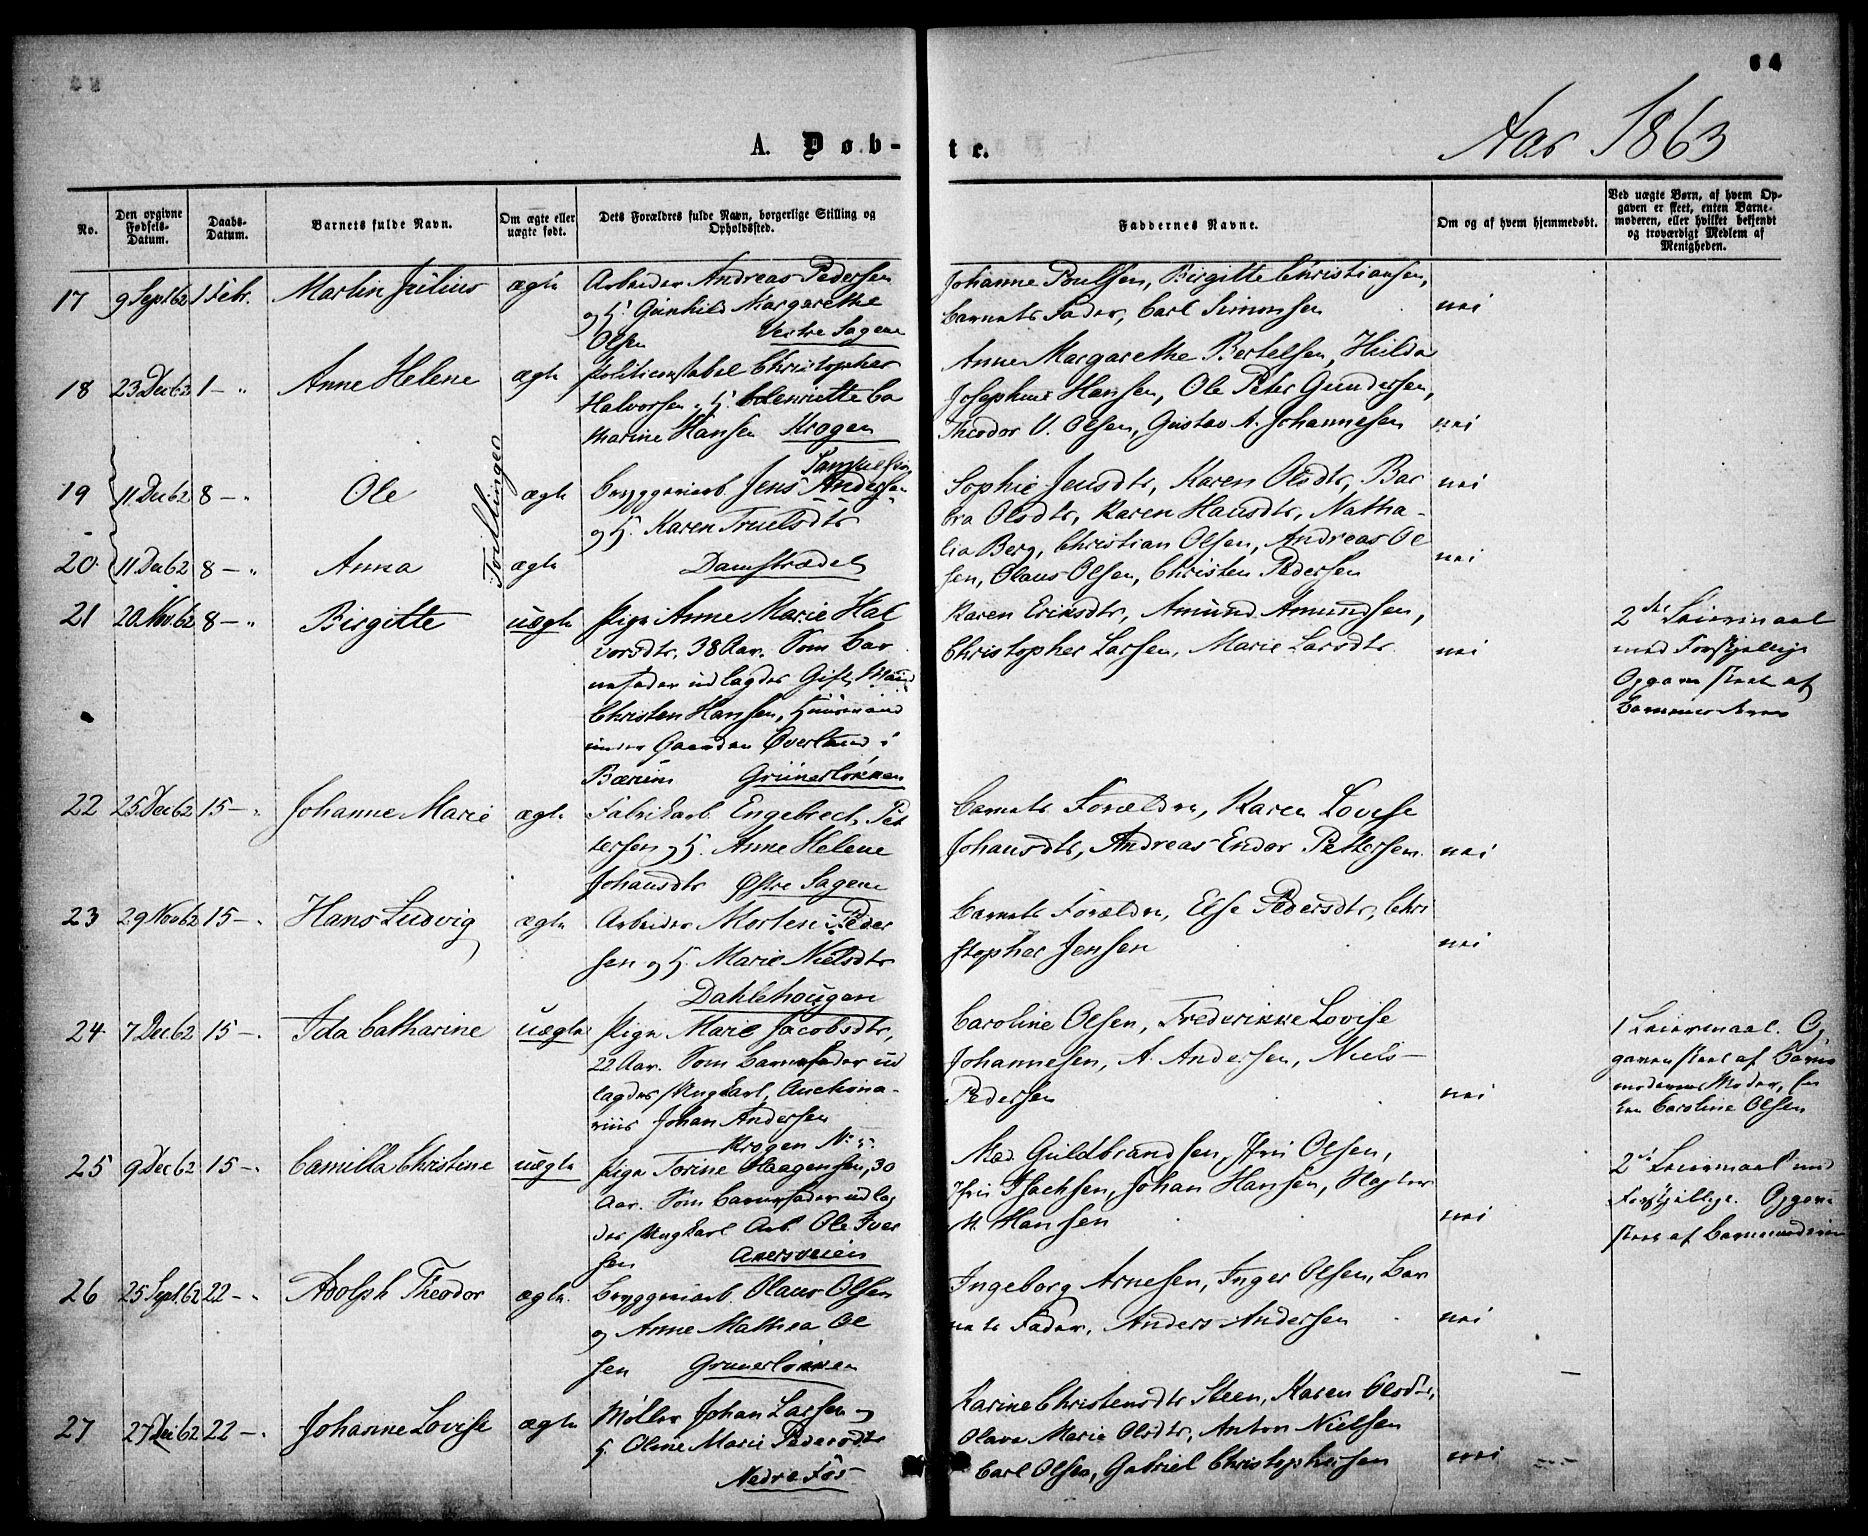 64
Aar 1863
A. Døb-te.
No.
Den opgivne Fødsels-Datum.
Daabs-Datum.
Barnets fulde Navn.
Om ægte eller uægte født.
Dets Forældres fulde Navn, borgerlige Stilling og Opholdssted.
Faddernes Navne.
Om og af hvem hjemmedøbt.
Ved uægte Børn, af hvem Opgaven er skeet, enten Barnemoderen, eller hvilket bekjendt og troværdigt Medlem af Menigheden.
17 9 Sept 62 1 Febr. Martin Julius ægte
Arbeider Andreas Pedersen
og H. Gunhild Margarethe
Olsen Vestre Sagene
Johanne Poulsen, Birgitte Christiansen,
Barnets Fader, Carl Simonsen nei
18 23 Dec 62 1 - " Anne Helene ægte
Politiconstabel Christopher
Halvorsen, H. Henriette Ca
thrine Hansen Krogen
Anne Margarethe Bertelsen, Hulda
Josephine Hansen, Ole Peter Gundersen,
Theodor V. Olsen, Gustav A. Johannesen nei
Tvillinger
19 11 Dec 62 8 - " Ole ægte
Samuelsen
Bryggeriarb. Jens Andersen
og H. Karen Truelsdtr
Sophie Jensdtr, Karen Olsdtr, Bar
bra Olsdtr, Karen Hansdtr, Natha-
nei
20 11 Dec 62 8 - " Anna ægte
Damstrædet
lia Berg, Christian Olsen, Andreas Ol
sen, Olaus Olsen, Christen Pedersen nei
21 20 Nov 62 8 - " Birgitte uægte
Pige Anne Marie Hal
vorsdtr. 38 Aar. Som Bar
nefader udlagdes Gift Mand
Christen Hansen, Huusmand
under Gaarden Øverland i
Bærum Grünerløkken
Karen Eriksdtr, Amund Amundsen,
Christopher Larsen, Marie Larsdtr nei
2det Leiermaal
med Forskjellige
Opgaven skeet af
Barnemoderen
22 25 Dec 62 15 - " Johanne Marie ægte
Fabrikarb. Engebrecht Pet
tersen og H. Anne Helene
Johansdtr Østre Sagene
Barnets Forældre, Karen Lovise
Johansdtr, Andreas Endor Pettersen nei
23 29 Nov 62 15 - " Hans Ludvig ægte
Arbeider Morten Peder
sen og H. Marie Nielsdtr
Dahlehougen
Barnets Forældre, Else Pedersdtr, Chri
stopher Jensen nei
24 7 Dec 62 15 - " Ida Cathrine uægte
Pige Marie Jacobsdtr,
22 Aar. Som Barnefader ud
lagdes Ungkarl, Auctiona-
rius Johan Andersen
Krogen No
Caroline Olsen, Frederikke Lovise
Johannesen, A. Andersen, Niels
Pedersen nei
1 Leiermaal. Op
gaven skeet af Barne
moderens Moder, En
ken Caroline Olsen
25 9 Dec 62 15 - " Camilla Christine uægte
Pige Torine Haagensen, 30
Aar. Som Barnefader udlag
des Ungkarl Arb. Ole Iver
sen Akersveien
Mad. Guldbrandsen, Jfru Olsen,
Jfru Isachsen, Johan Hansen,
M. Hansen nei
2det Leiermaal med
Forskjellige. Opgaven
skeet af Barnemoderen
26 25 Sept. 62 22 - " Adolph Theodor ægte
Bryggeriarb. Olaus Olsen
og Anne Mathea Ol
sen Grünerløkken
Ingeborg Arnesen, Inger Olsen, Bar
nets Fader, Anders Andersen nei
27 27 Dec 62 22 - " Johanne Lovise ægte
Møller Johan Larsen og
H. Oline Marie Pedersdtr
Nedre Fos
Karine Christensdtr Steen, Karen Olsdtr,
Olava Marie Olsdtr, Anton Nielsen
Carl Olsen, Gabriel Christophersen nei